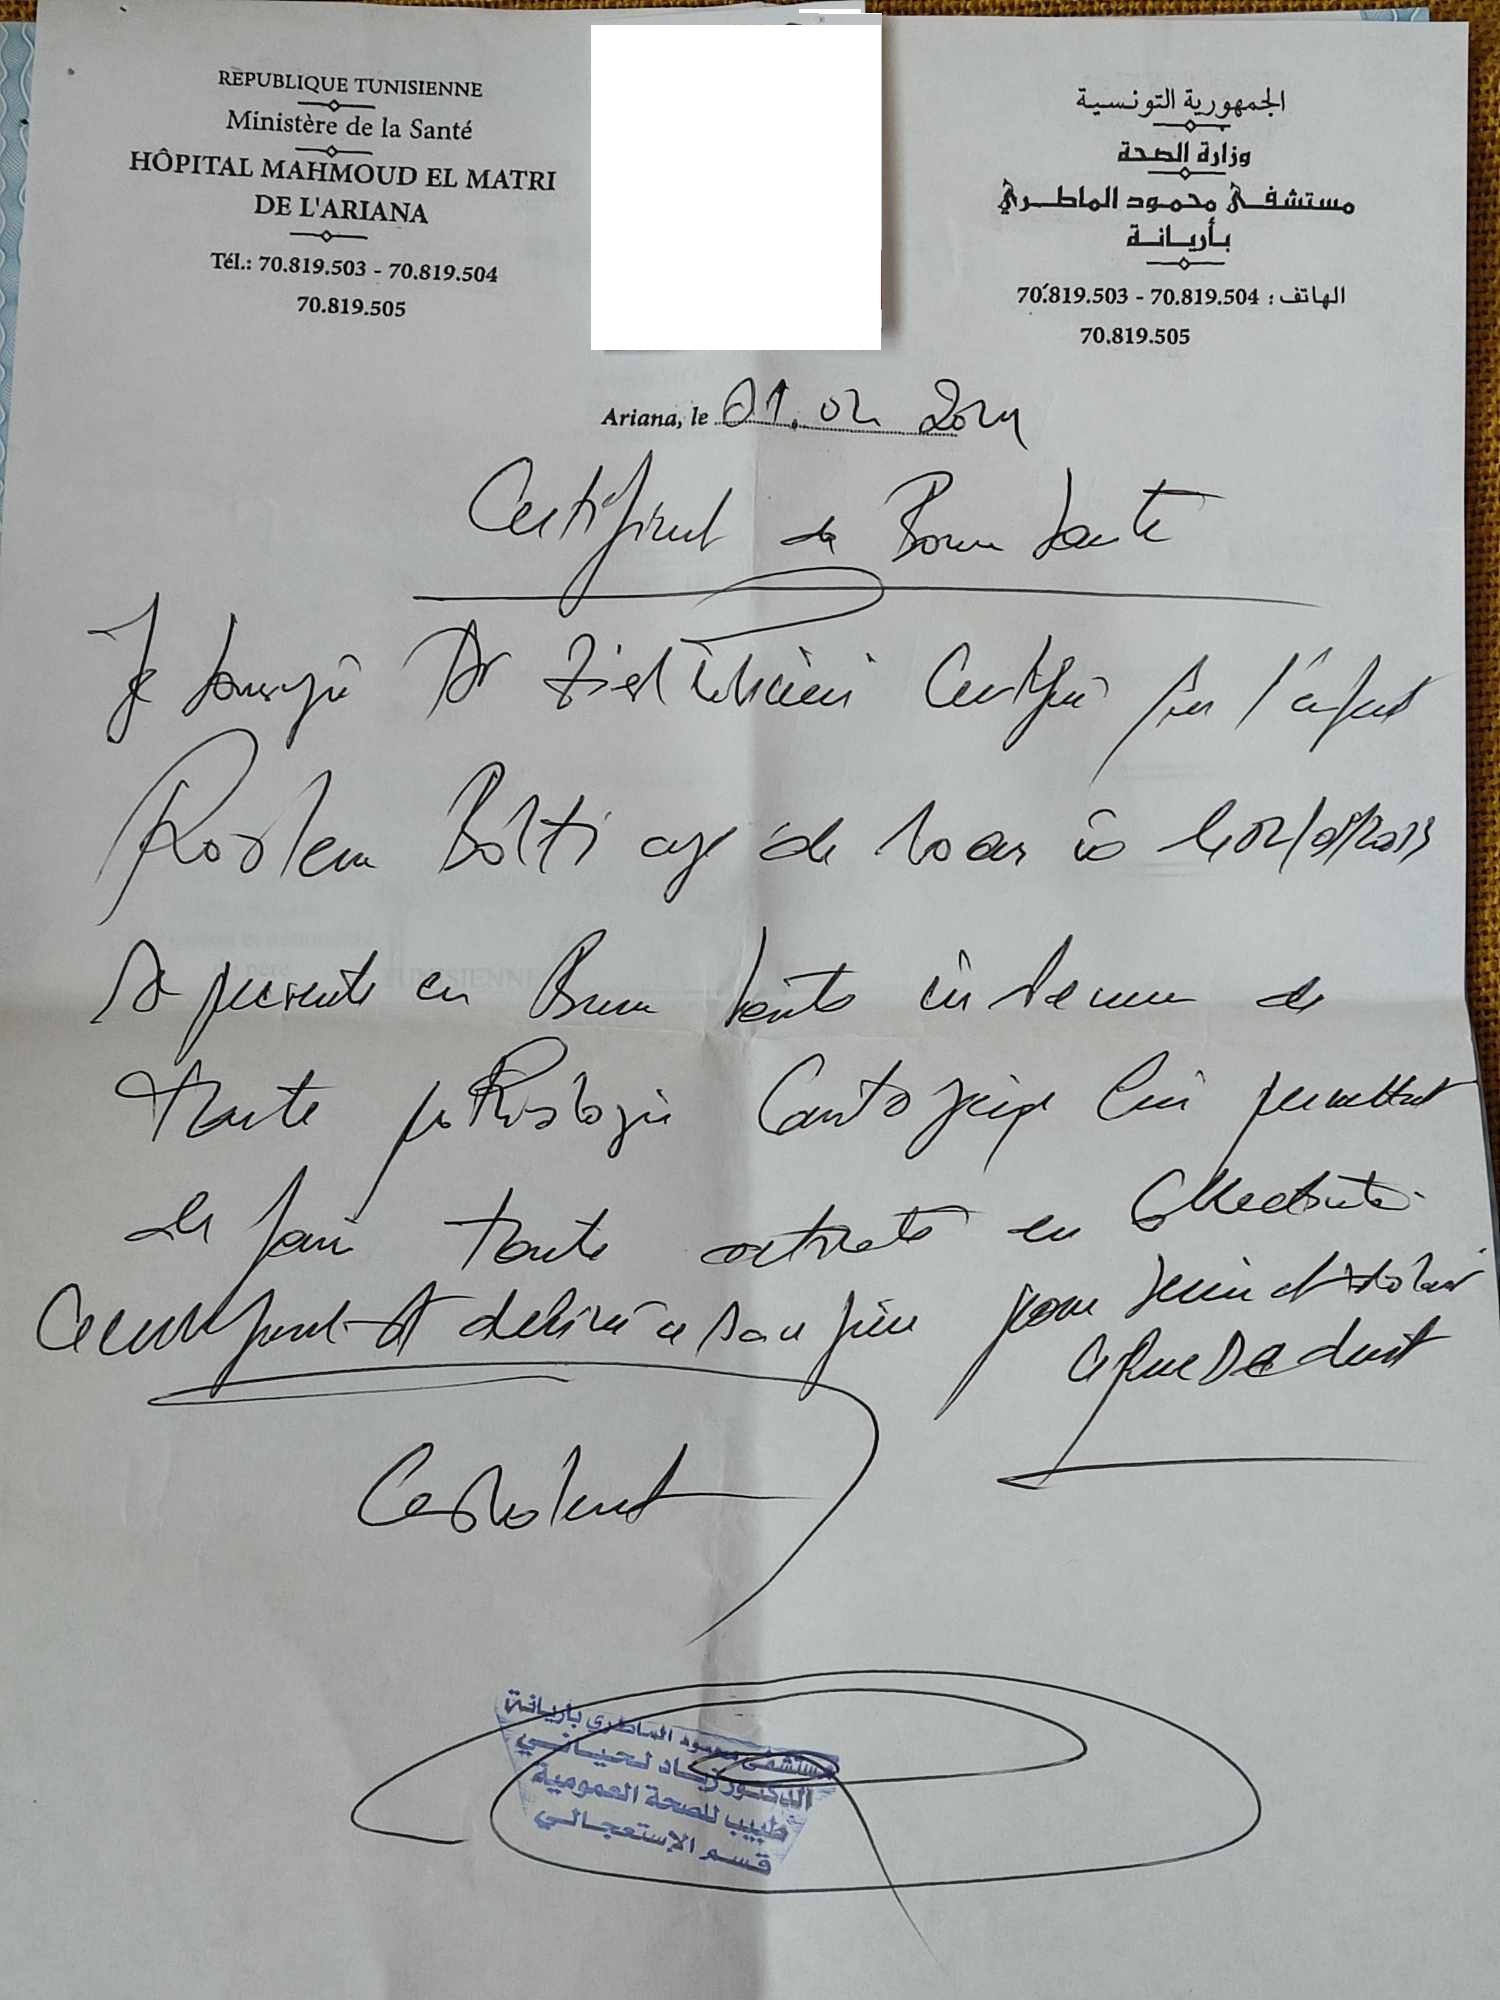 REPUBLIQUE TUNISIENNE
Ministère de la Santé
HÔPITAL MAHMOUD EL MATRI
DE L'ARIANA
Tél.: 70.819.503 - 70.819.504
70.819.505
الجمهورية التونسية
وزارة الصحة
مستشفى محمود الماطري
بأريانة
الهاتف : 70.819.504 - 70.819.503
70.819.505
Ariana, le 01.02 2024
Certificat de Bonne Santé
Je soussigné Dr Zied certifie que l'enfant
Roslem Bolti agé de 10 ans
se presente en Bonne santé indemne de
toute pathologie contagieuse lui permettant
de faire toute activité en collectivité
Ce certificat est delivré a son père pour servir et valoir
ce que de droit
مستشفى محمود الماطري بأريانة
الدكتور زياد لحياني
طبيب للصحة العمومية
قسم الإستعجالي